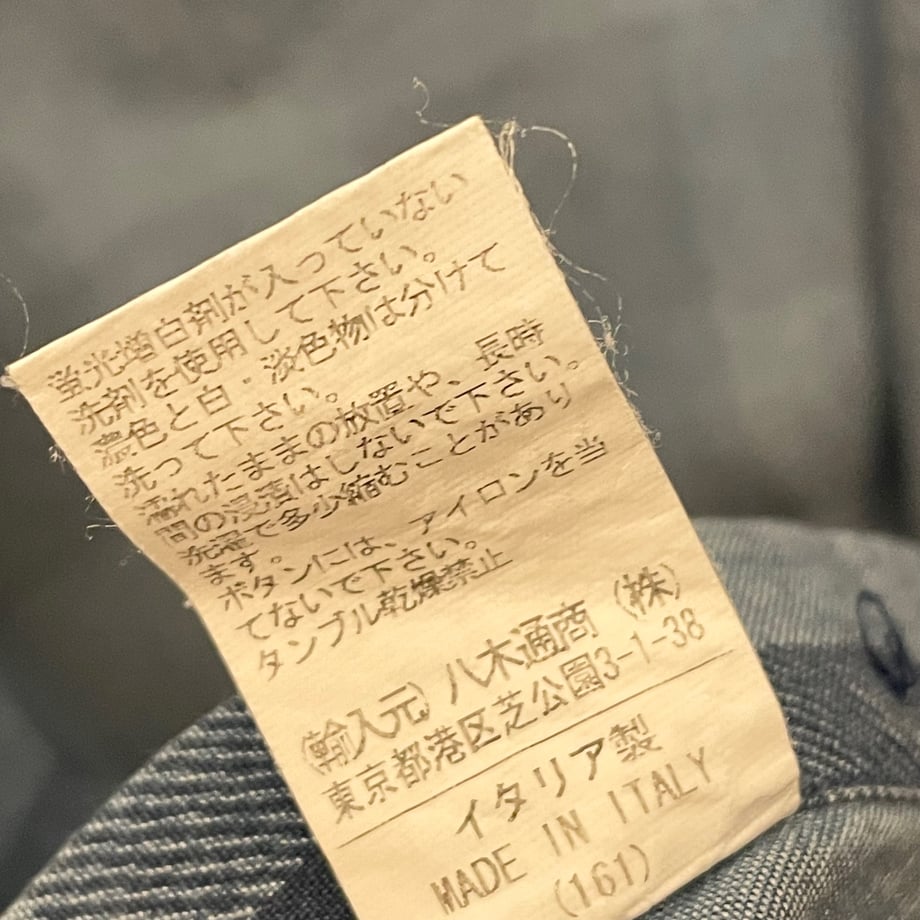 蛍光増白剤が入っていない
洗剤を使用して下さい。
濃色と白・淡色物は分けて
洗って下さい。
濡れたままの放置や、長時
間の浸漬はしないで下さい。
洗濯で多少縮むことがあり
ます。
ボタンには、アイロンを当
てないで下さい。
タンブル乾燥禁止
(輸入元) 八木通商 (株)
東京都港区芝公園3-1-38
イタリア製
MADE IN ITALY
(161)